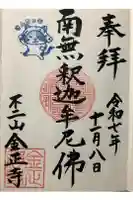 奉拝
令和七年
十二月八日
南無釈迦牟尼佛
不二山金正寺